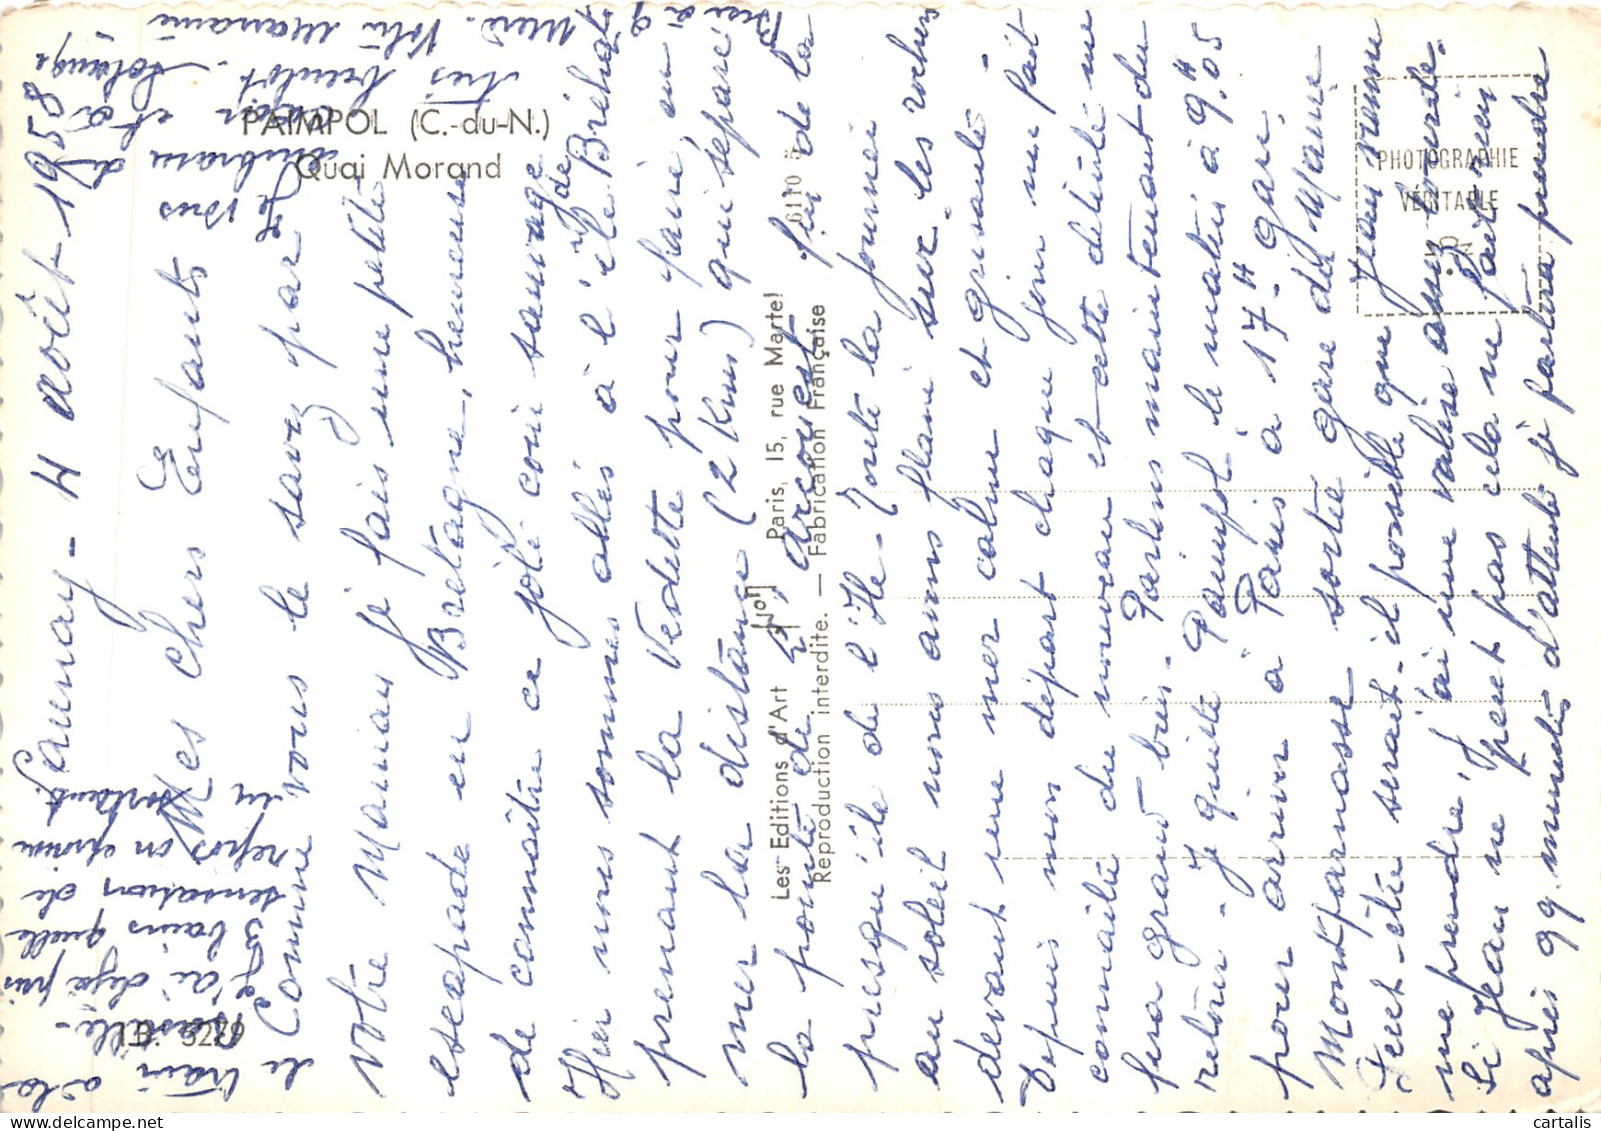 Launay - 4 août 1958
Mes chers Enfants
Comme vous le savez par
votre Maman je fais une petite
escapade en Bretagne, heureuse
de connaître ce joli coin sauvage
Hier nous sommes allés à l'île de Bréhat
prenant la Vedette pour faire en
mer la distance (2 Kms) qui sépare
la pointe de l'Arcouest
presqu'île de l'Ile - Toute la journée
au soleil nous avons flané sur les rochers
devant une mer calme et grisante -
Depuis mon départ chaque jour me fait
connaître du nouveau et cette détente me
fera grand bien - Parlons maintenant du
retour - Je quitte Paimpol le matin à 9H.05
pour arriver à Paris à 17H gare
Montparnasse sortie gare du Maine
Peut-être serait-il possible que Jean vienne
me prendre, j'ai une valise assez lourde.
Si Jean ne peut pas cela ne fait rien
après 99 minutes d'attente je partirai prendre
le train à la
Bastille -
J'ai déjà pris
3 bains quelle
sensation de
repos on éprouve
en sortant.
Je vous
embrasse
et à
très bientôt - Solange
Mes Maman
Bien à
fin de la
PAIMPOL (C.-du-N.)
Quai Morand
Les Editions d'Art YVON Paris, 15, rue Martel
Reproduction interdite. — Fabrication Française
6110 5
PHOTOGRAPHIE
VÉRITABLE
3279
cartalis